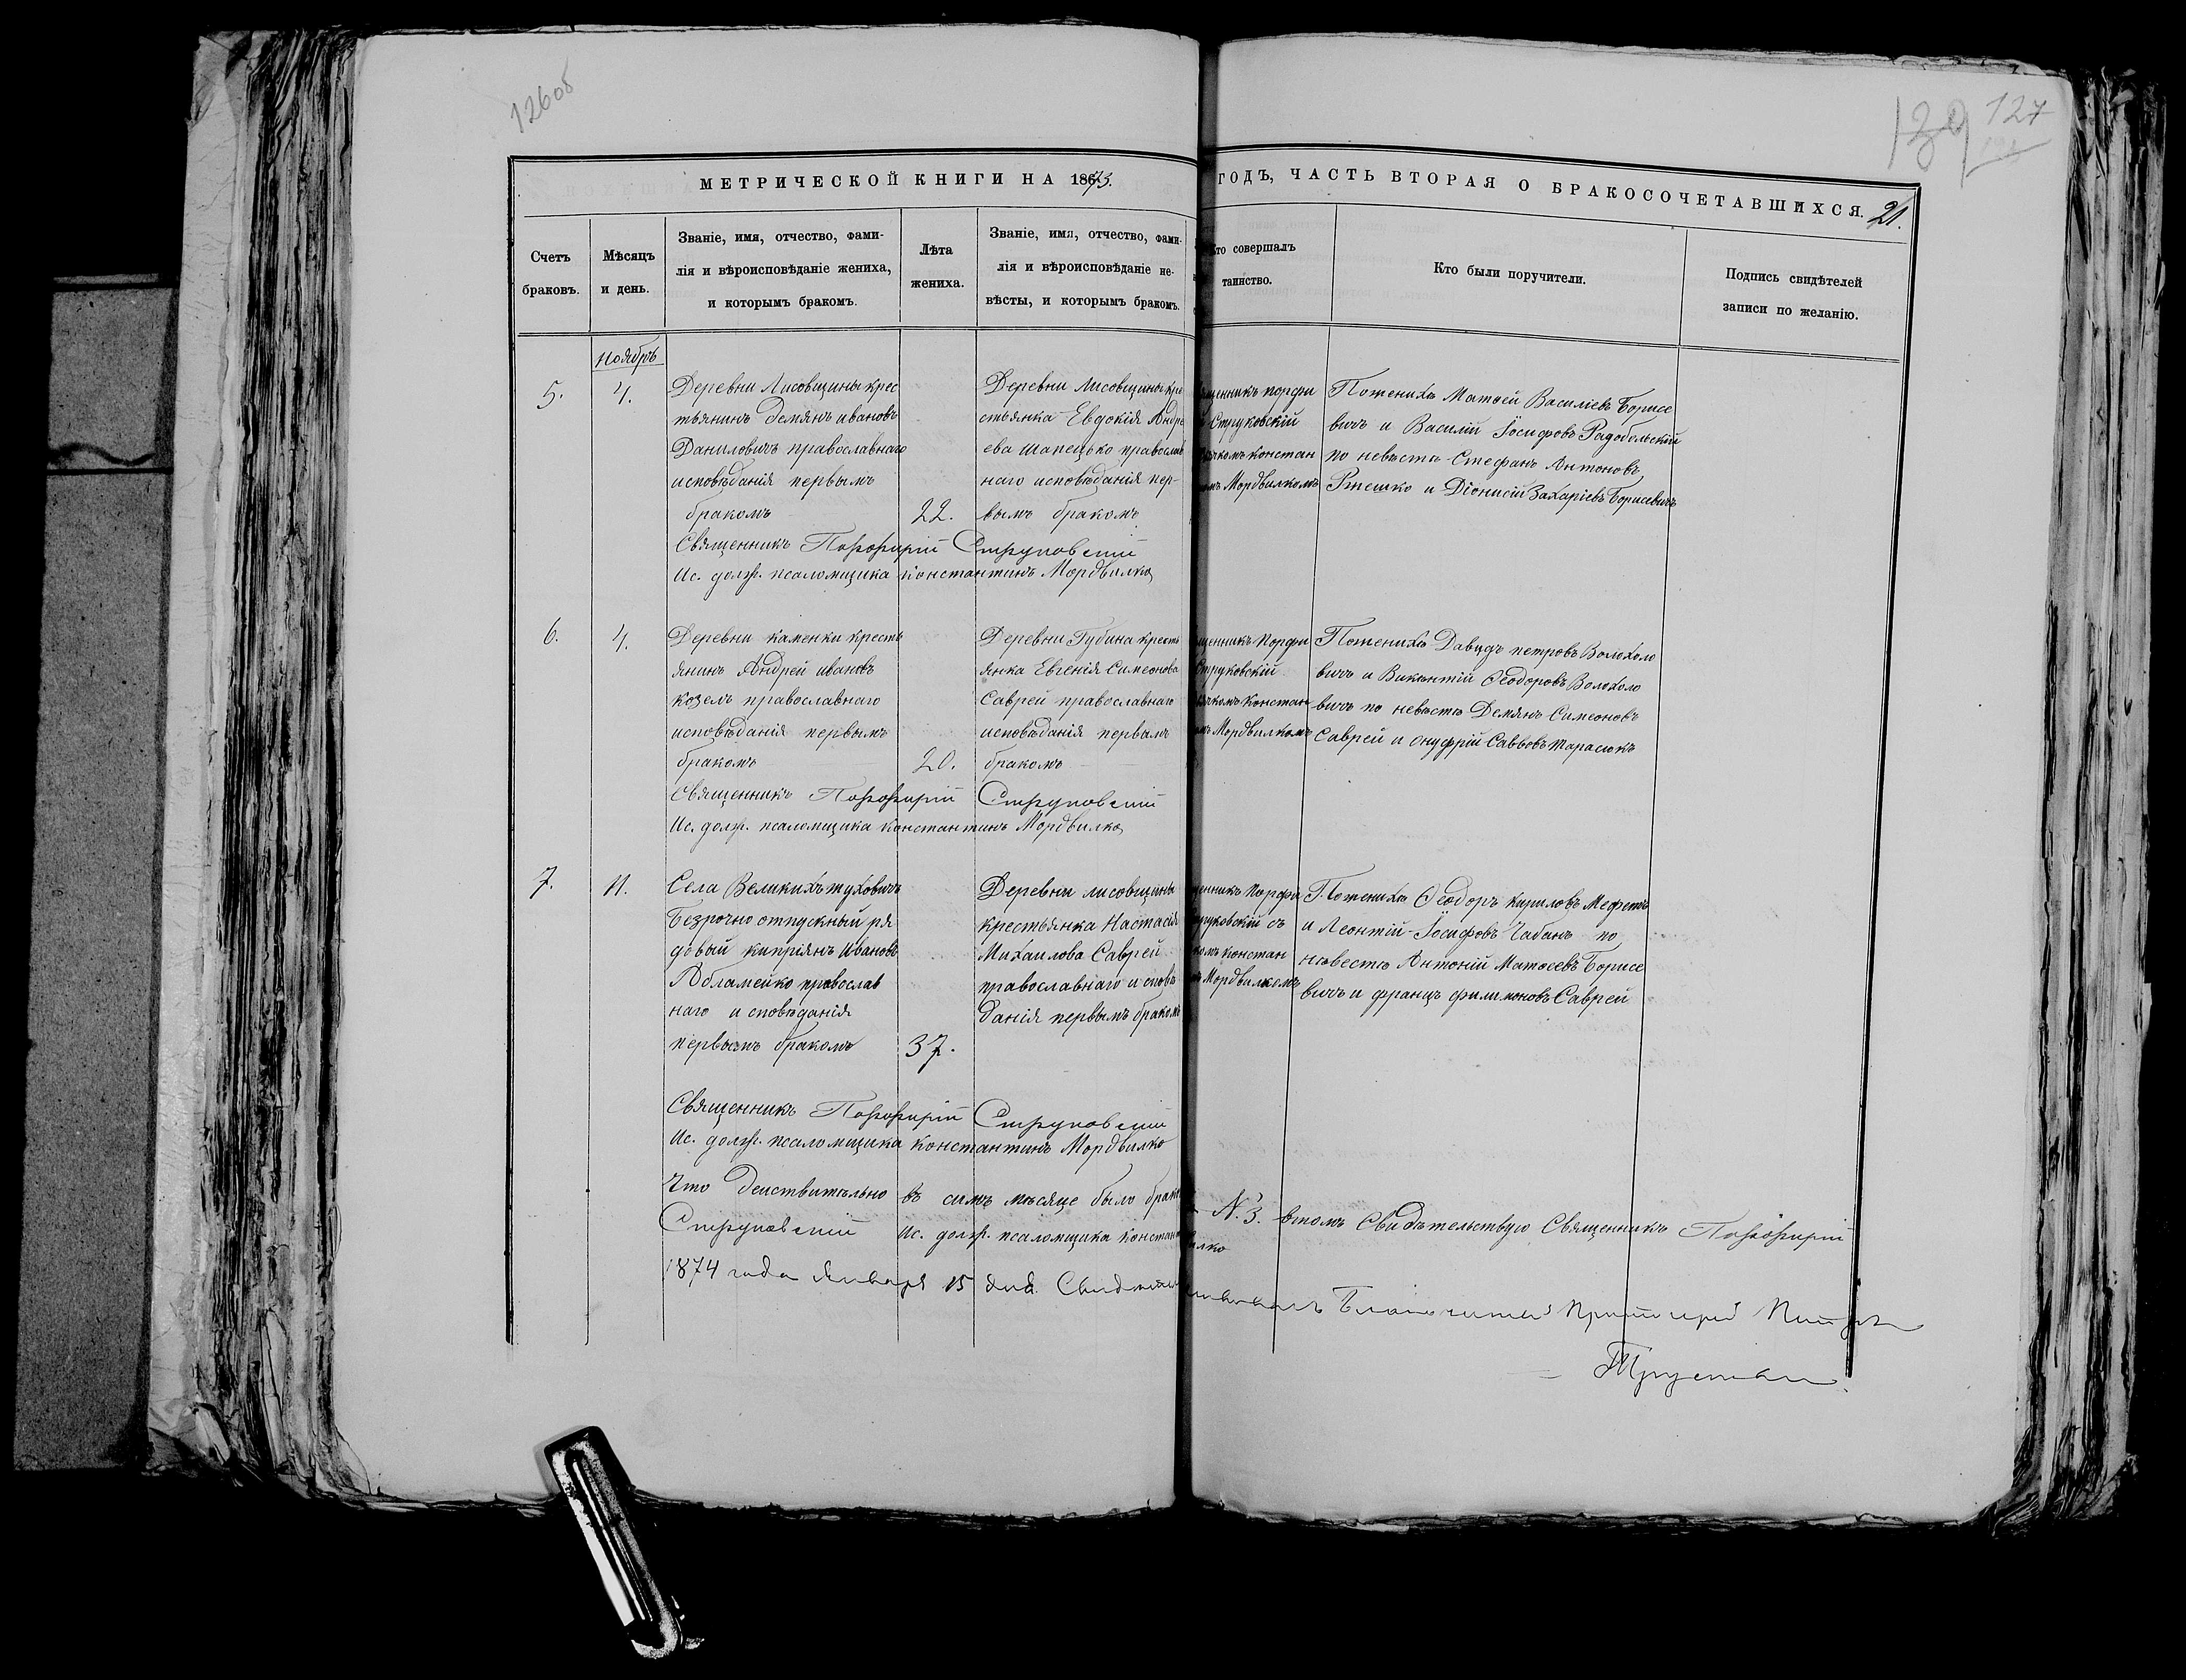 126об
139 127
МЕТРИЧЕСКОЙ КНИГИ НА 1873.
ГОДЪ, ЧАСТЬ ВТОРАЯ О БРАКОСОЧЕТАВШИХСЯ. 21.
Счетъ
браковъ.
Мѣсяцъ
и день.
Званіе, имя, отчество, фами-
лія и вѣроисповѣданіе жениха,
и которымъ бракомъ.
Лѣта
жениха.
Званіе, имя, отчество, фами-
лія и вѣроисповѣданіе не-
вѣсты, и которымъ бракомъ.
Кто совершалъ
таинство.
Кто были поручители.
Подпись свидѣтелей
записи по желанію.
Ноябрь
5.
4.
Деревни Лисовщины крес
тьянинъ Демянъ Ивановъ
Даниловичъ православнаго
исповѣданія первымъ
бракомъ
22.
Деревни Лисовщины кре
стьянка Евдокія Андре
ева Шапецько православ
наго исповѣданія пер-
вымъ бракомъ
щенникъ Порфи
Струковскій
комъ Констан
мъ Мордвилкомъ
По женихѣ Матѳей Василіевъ Борисе
вичъ и Василій Іосифовъ Радобольскій
по невѣстѣ Стефанъ Антоновъ
Ртешко и Діонисій Захаріевъ Борисевичъ
Священникъ Порфирій Струковскій
Ис. долж. псаломщика Константинъ Мордвилко
6.
4.
Деревни Каменки кресть
янинъ Андрей Ивановъ
Козелъ православнаго
исповѣданія первымъ
бракомъ
20.
Деревни Губина кресть
янка Евгенія Симеонова
Саврей православнаго
исповѣданія первымъ
бракомъ
щенникъ Порфи
Струковскій
комъ Констан
мъ Мордвилкомъ
По женихѣ Давидъ Петровъ Волохоло
вичъ и Викентій Ѳеодоровъ Волохоло
вичъ по невѣстѣ Демянъ Симеоновъ
Саврей и Онуфрій Саввовъ Тарасюкъ
Священникъ Порфирій Струковскій
Ис. долж. псаломщика Константинъ Мордвилко
7.
11.
Села Великихъ Туховичъ
безрочно отпускный ря
довый Кипріянъ Ивановъ
Абламейко православ
наго исповѣданія
первымъ бракомъ
37.
Деревни Лисовщины
крестьянка Настасія
Михаилова Саврей
православнаго исповѣ
данія первымъ бракомъ
щенникъ Порфи
руковскій съ
комъ Констан
ъ Мордвилкомъ
По женихѣ Ѳеодоръ Кириловъ Мефетъ
и Леонтій Іосифовъ Чабанъ по
невѣстѣ Антоній Матѳеевъ Борисе
вичъ и Францъ Филимоновъ Саврей
Священникъ Порфирій Струковскій
Ис. долж. псаломщика Константинъ Мордвилко
Что дѣйствительно въ симъ мѣсяце было брак N. 3. в томъ Свидѣтельствую Священникъ Порфирій
Струковскій Ис. долж. псаломщика Констан илко
1874 года Января 15 дня. Свидѣтельствовалъ Благочинный Протоіерей Петръ